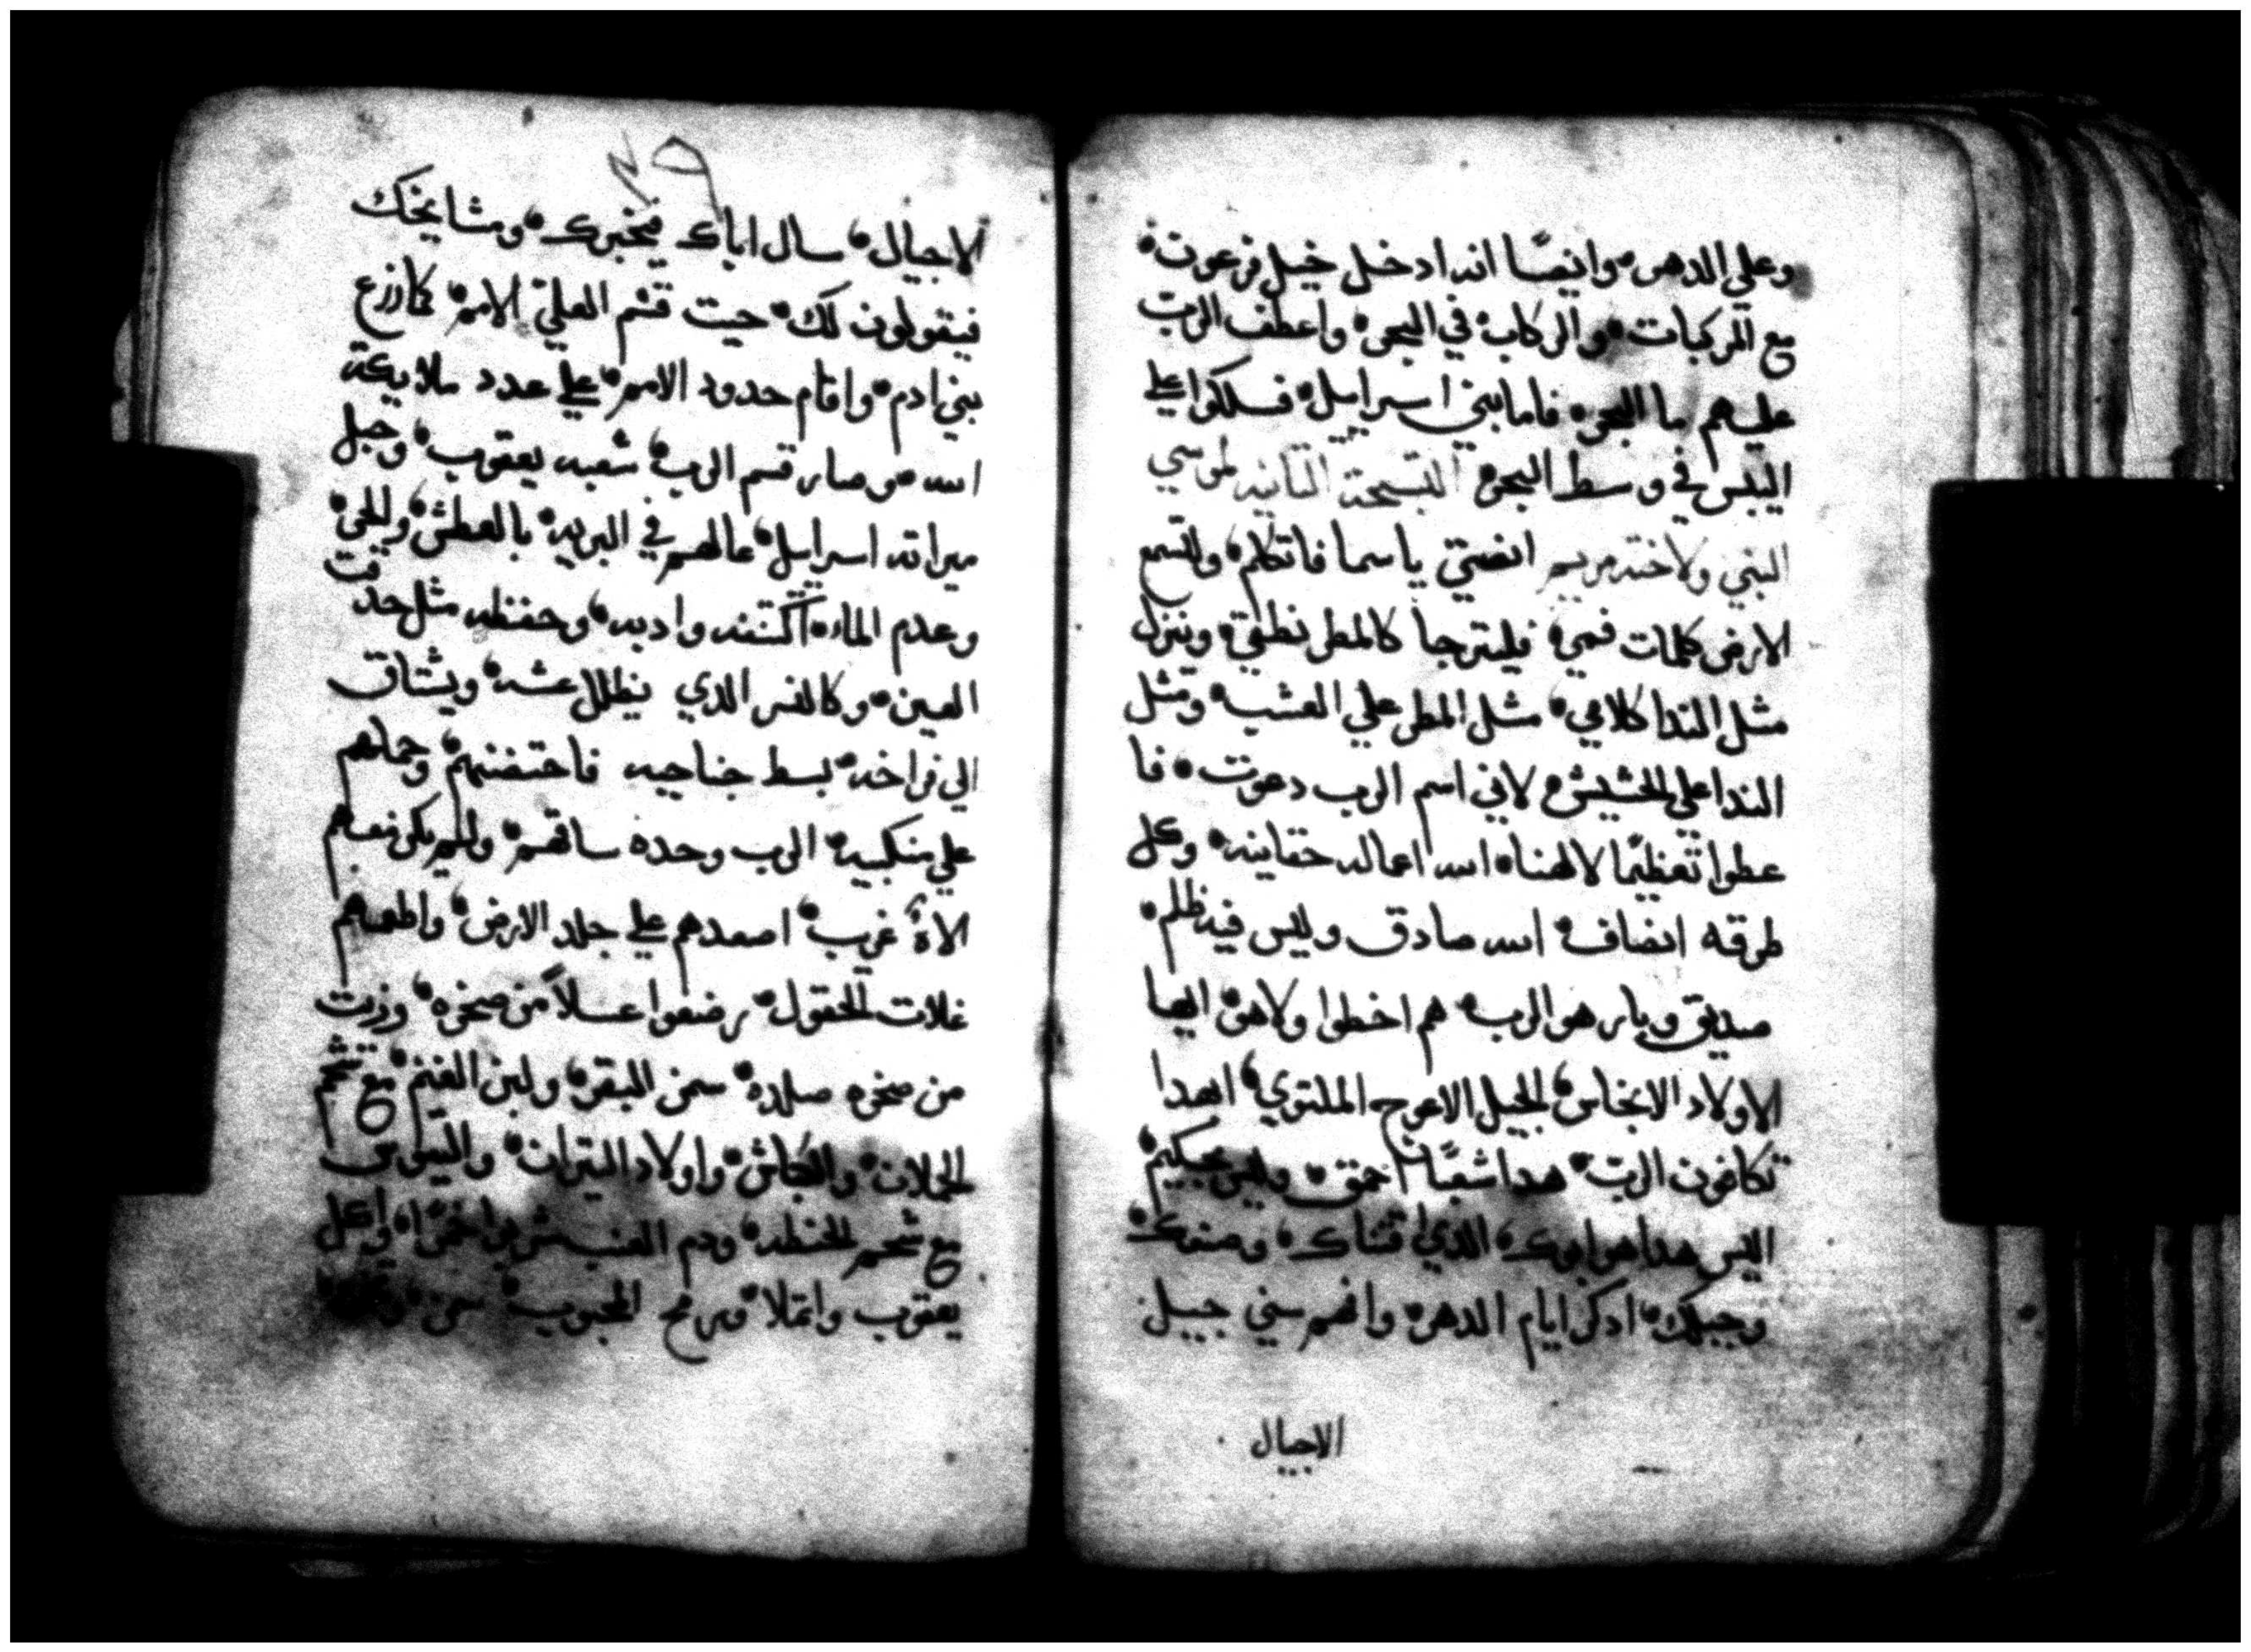 وعلي الدهر، وايضًا انه ادخل خيل فرعون،
مع المركبات، والركاب، في البحر، واعطف الرب
عليهم ما البحر، فاما بني اسراييل، فسلكوا علي
اليبس في وسط البحر، التسبحة التانيه لموسي
النبي ولاخته مريم انصتي ياسما فاتكلم، ولتسمع
الارض كلمات فمي، فليترجا كالمطر نطقي، وينزل
مثل الندا كلامي، مثل المطر علي العشب، ومثل
الندا علي الحشيش، لاني اسم الرب دعوت، فا
عطوا تعظيمًا لالهنا، الله اعماله حقانيه، وكل
طرقه انصاف، الله صادق وليس فيه ظلم،
صديق وبار هو الرب، هم اخطوا ولاهن ايها
الاولاد الانجاس، الجيل الاعوج الملتوي، اهدا
تكافون الرب، هدا شعبًا احمق، وليس بحكيم،
اليس هدا هو ابوك، الدي اقتناك، وصنعك،
وجبلك، ادكر ايام الدهر، وافهم سني جييل
الاجيال
٣٩
الاجيال، سال اباك فيخبرك، ومشايخك
فيقولون لك، حيت قسم العلي الامم، كازرع
بني ادم، واقام حدود الامم، علي عدد ملايكة
الله، وصار قسم الرب، شعبه يعقوب، وحبل
ميراته اسراييل، عالهم في البريه، بالعطش، والحر،
وعدم الماء، اكتنفه وادبه، وحفظه مثل حدقت
العين، وكالنسر الدي يظلل عشه، ويشتاق
الي فراخه، بسط جناحيه فاحتضنهم، وحملهم
علي منكبيه، الرب وحده ساقهم، ولم يكن معهم
الاهٌ غريب، اصعدهم علي جلد الارض، واطعمهم
غلات الحقول، رضعوا عسلاً من صخره، وزيت
من صخره صلده، سمن البقر، ولبن الغنم، مع شحم
الحملان، والكباش، واولاد التيران، والتيوس
مع شحم الحنطه، ودم العنب شربوا خمرًا، واكل
يعقوب وامتلا، ومرح المحبوب، سمن